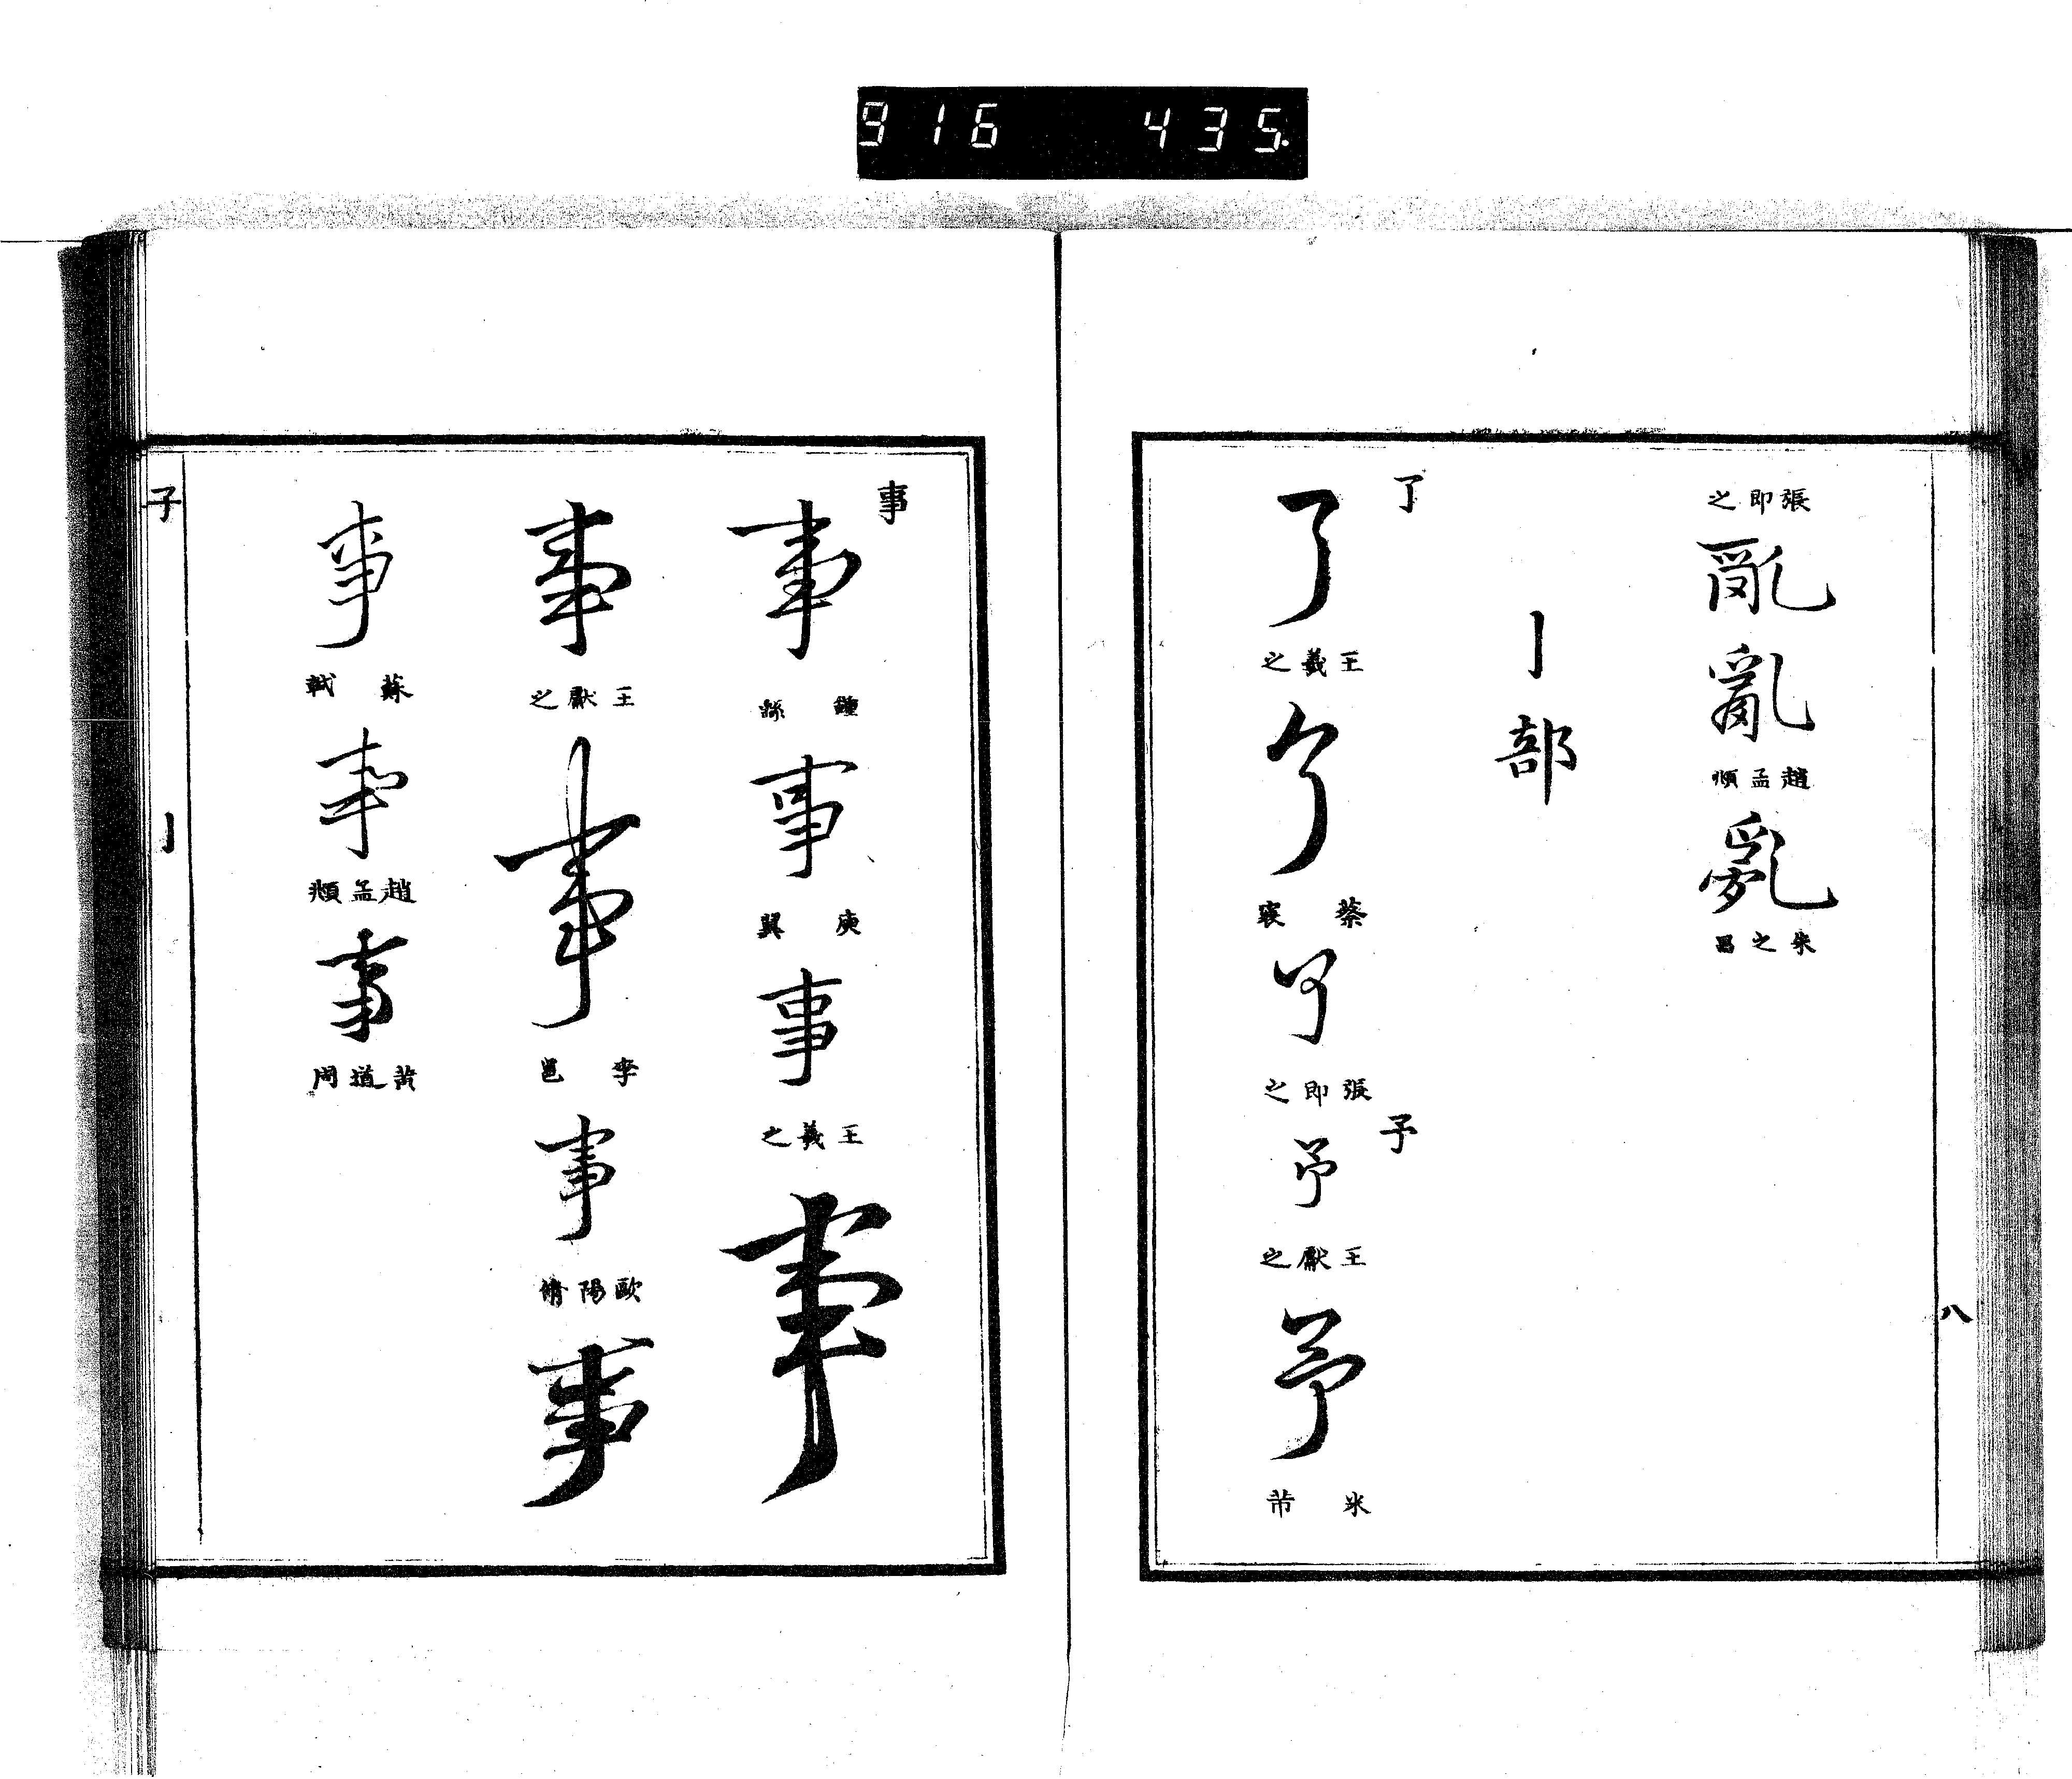 916 435
張即之
亂
亂
趙孟頫
亂
朱之昌
亅部
了
了
王羲之
了
蔡襄
了
張即之
予
予
王獻之
予
米芾
八
事
事
鍾繇
事
庾翼
事
王羲之
事
事
王獻之
事
李邕
事
歐陽脩
事
事
蘇軾
事
趙孟頫
事
黃道周
子 亅